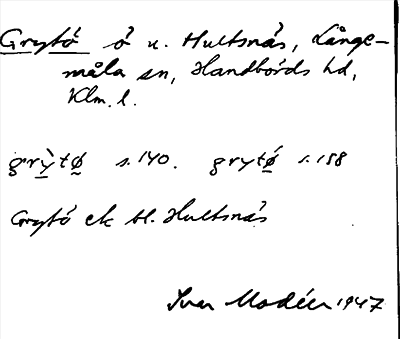 Grytö ö u. Hultsnäs, Långe-
måla sn, Handbörds hd,
Klm. l.
grỳtø s. 140. grytǿ s. 158
Grytö ek bl. Hultsnäs
Ivar Modéer 1947